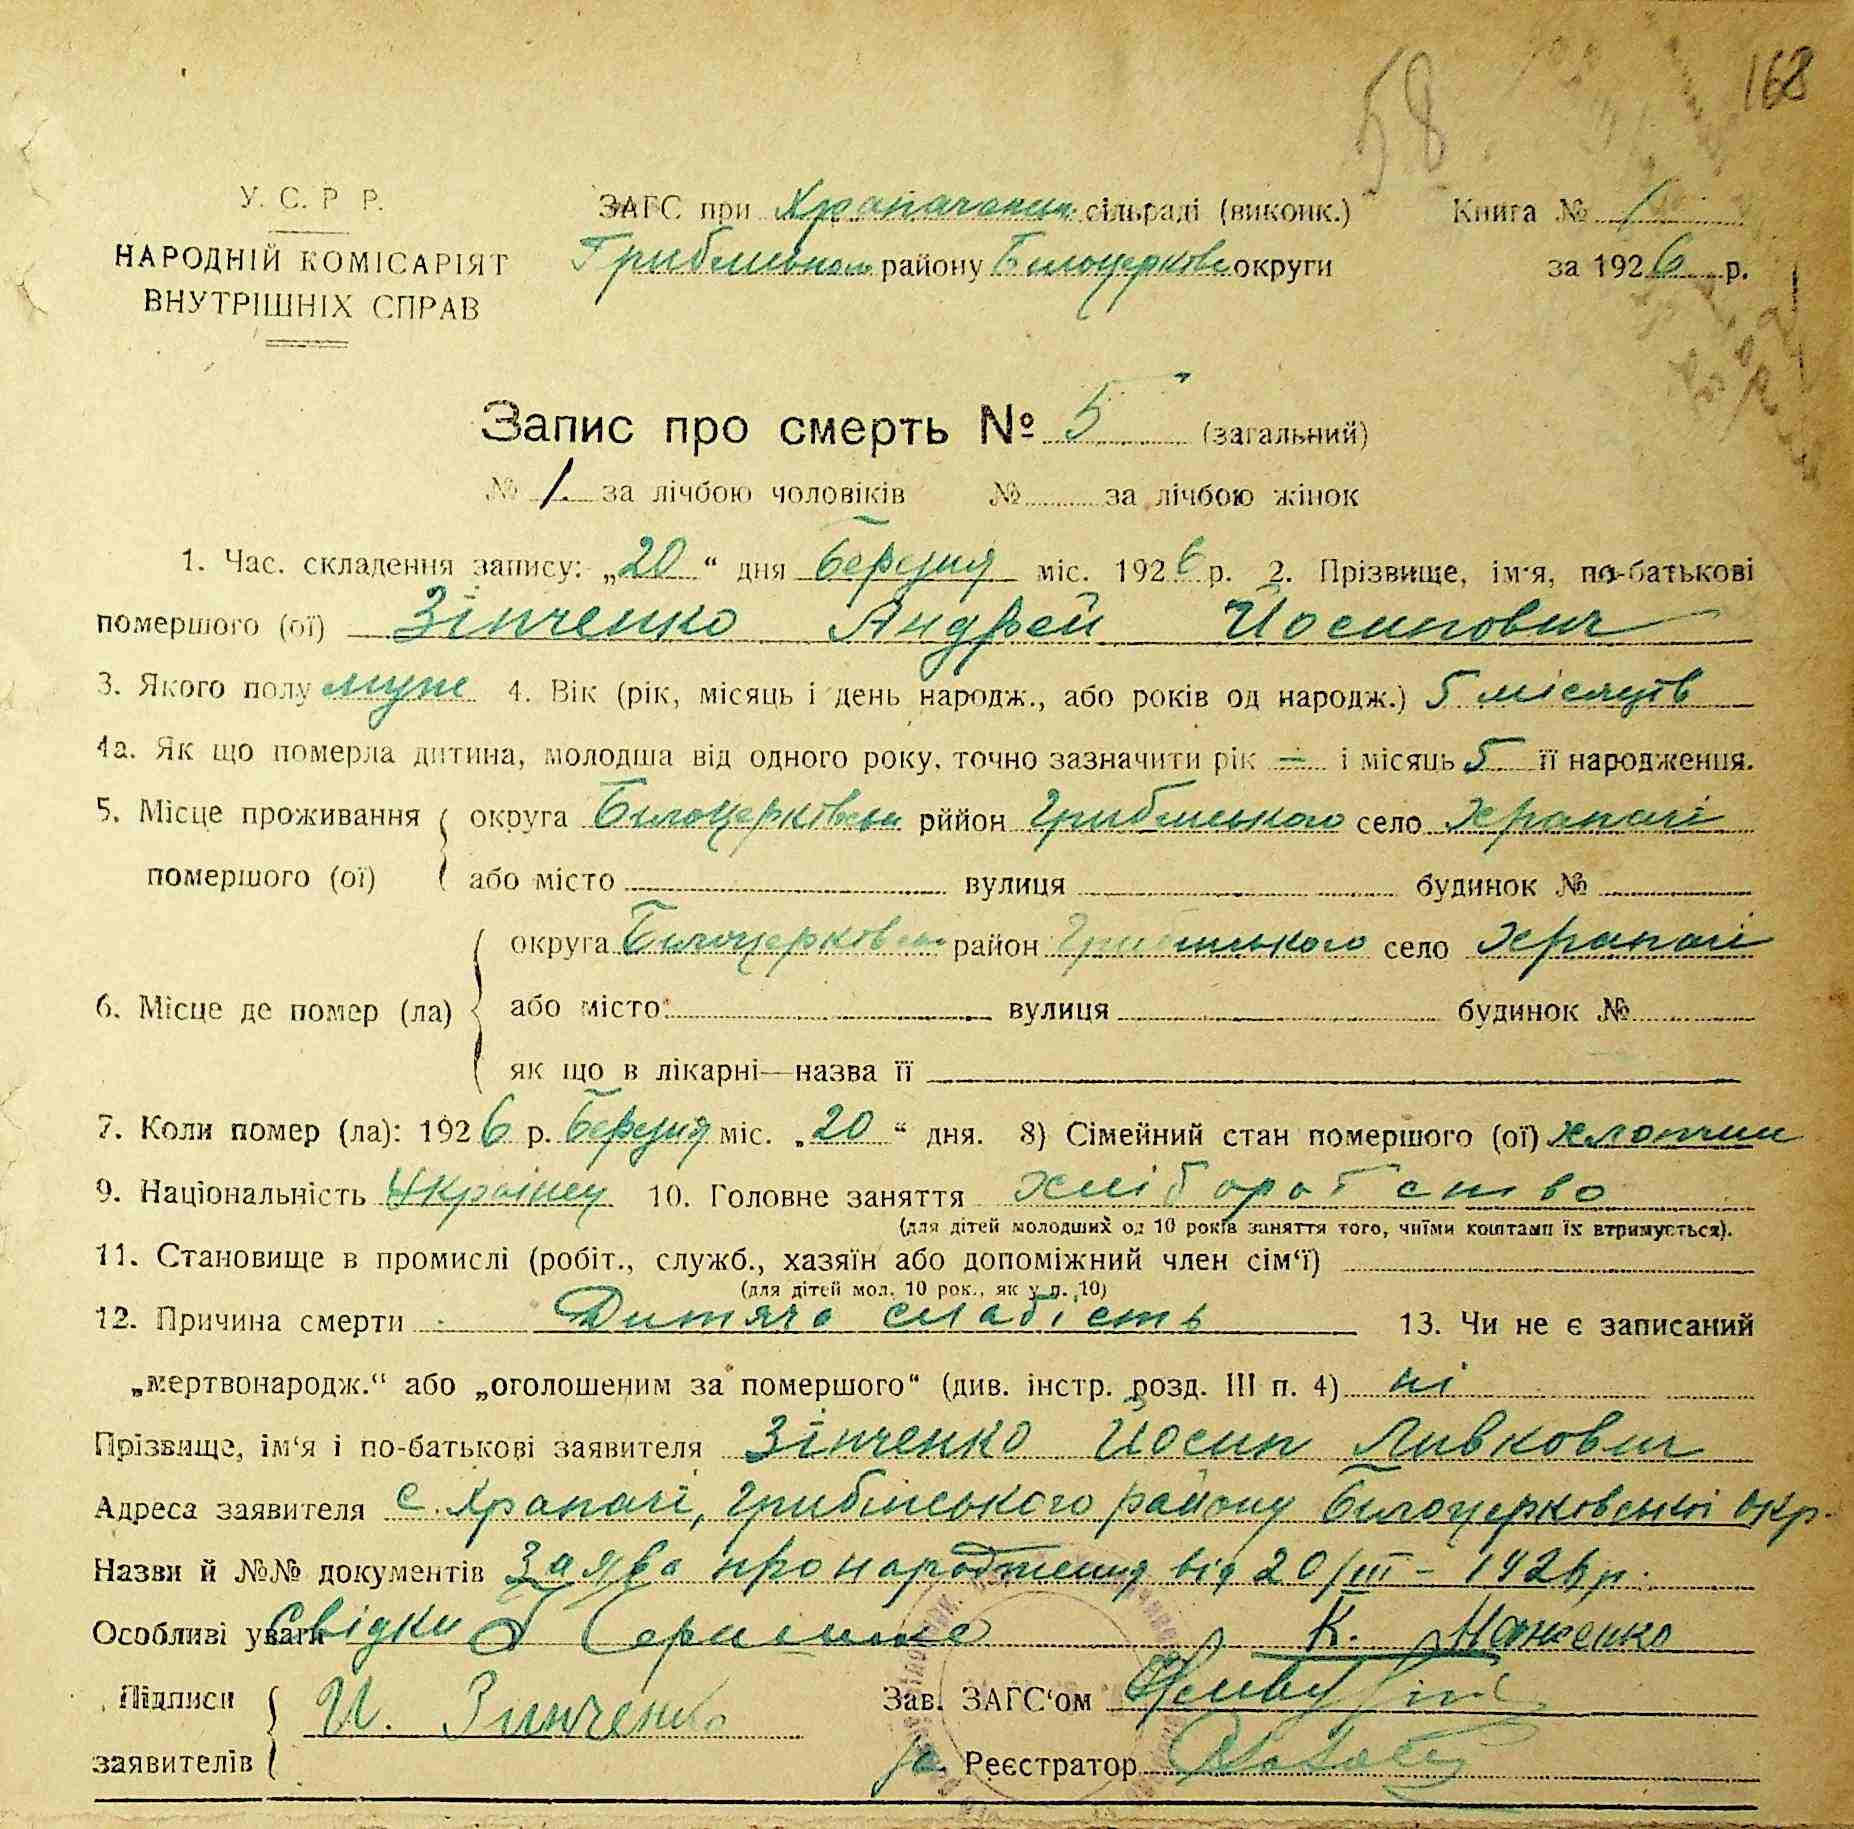 168
58
У. С. Р Р.
НАРОДНІЙ КОМІСАРІЯТ
ВНУТРІШНІХ СПРАВ
ЗАГС при Храпачанск. сільраді (виконк.) Книга № 1
району Білоцерковс округи за 1926 р.
Запис про смерть № 5 (загальний)
№ 1. за лічбою чоловіків № за лічбою жінок
1. Час. складення запису: „20“ дня березня міс. 1926 р. 2. Прізвище, ім'я, по-батькові
помершого (ої) Зінченко Андрей Йосипович
3. Якого полу муж 4. Вік (рік, місяць і день народж., або років од народж.) 5 місяців
4а. Як що померла дитина, молодша від одного року, точно зазначити рік — і місяць 5 її народження.
5. Місце проживання округа Білоцерківськ рййон Гребінського село Храпачі
помершого (ої) або місто вулиця будинок №
округа Білоцерковськ район Гребінського село Храпачі
6. Місце де помер (ла) або місто: вулиця будинок №
як що в лікарні—назва її
7. Коли помер (ла): 1926 р. березня міс. „20“ дня. 8) Сімейний стан помершого (ої) хлопчик
9. Національність Україней 10. Головне заняття хліборобство
(для дітей молодших од 10 років заняття того, чиїми коштами їх втримується).
11. Становище в промислі (робіт., служб., хазяїн або допоміжний член сім'ї)
(для дітей мол. 10 рок., як у п. 10)
12. Причина смерти Дитяча слабість 13. Чи не є записаний
„мертвонародж.“ або „оголошеним за помершого“ (див. інстр. розд. III п. 4) ні
Прізвище, ім'я і по-батькові заявителя Зінченко Йосип Ливкович
Адреса заявителя с. Храпачі, Гребінського району Білоцерковської окр.
Назви й №№ документів Заява про народження від 20/III – 1926 р.
Особливі уваги Свідки К.
Підписи И. Зинченко Зав. ЗАГС'ом
заявителів за Реєстратор